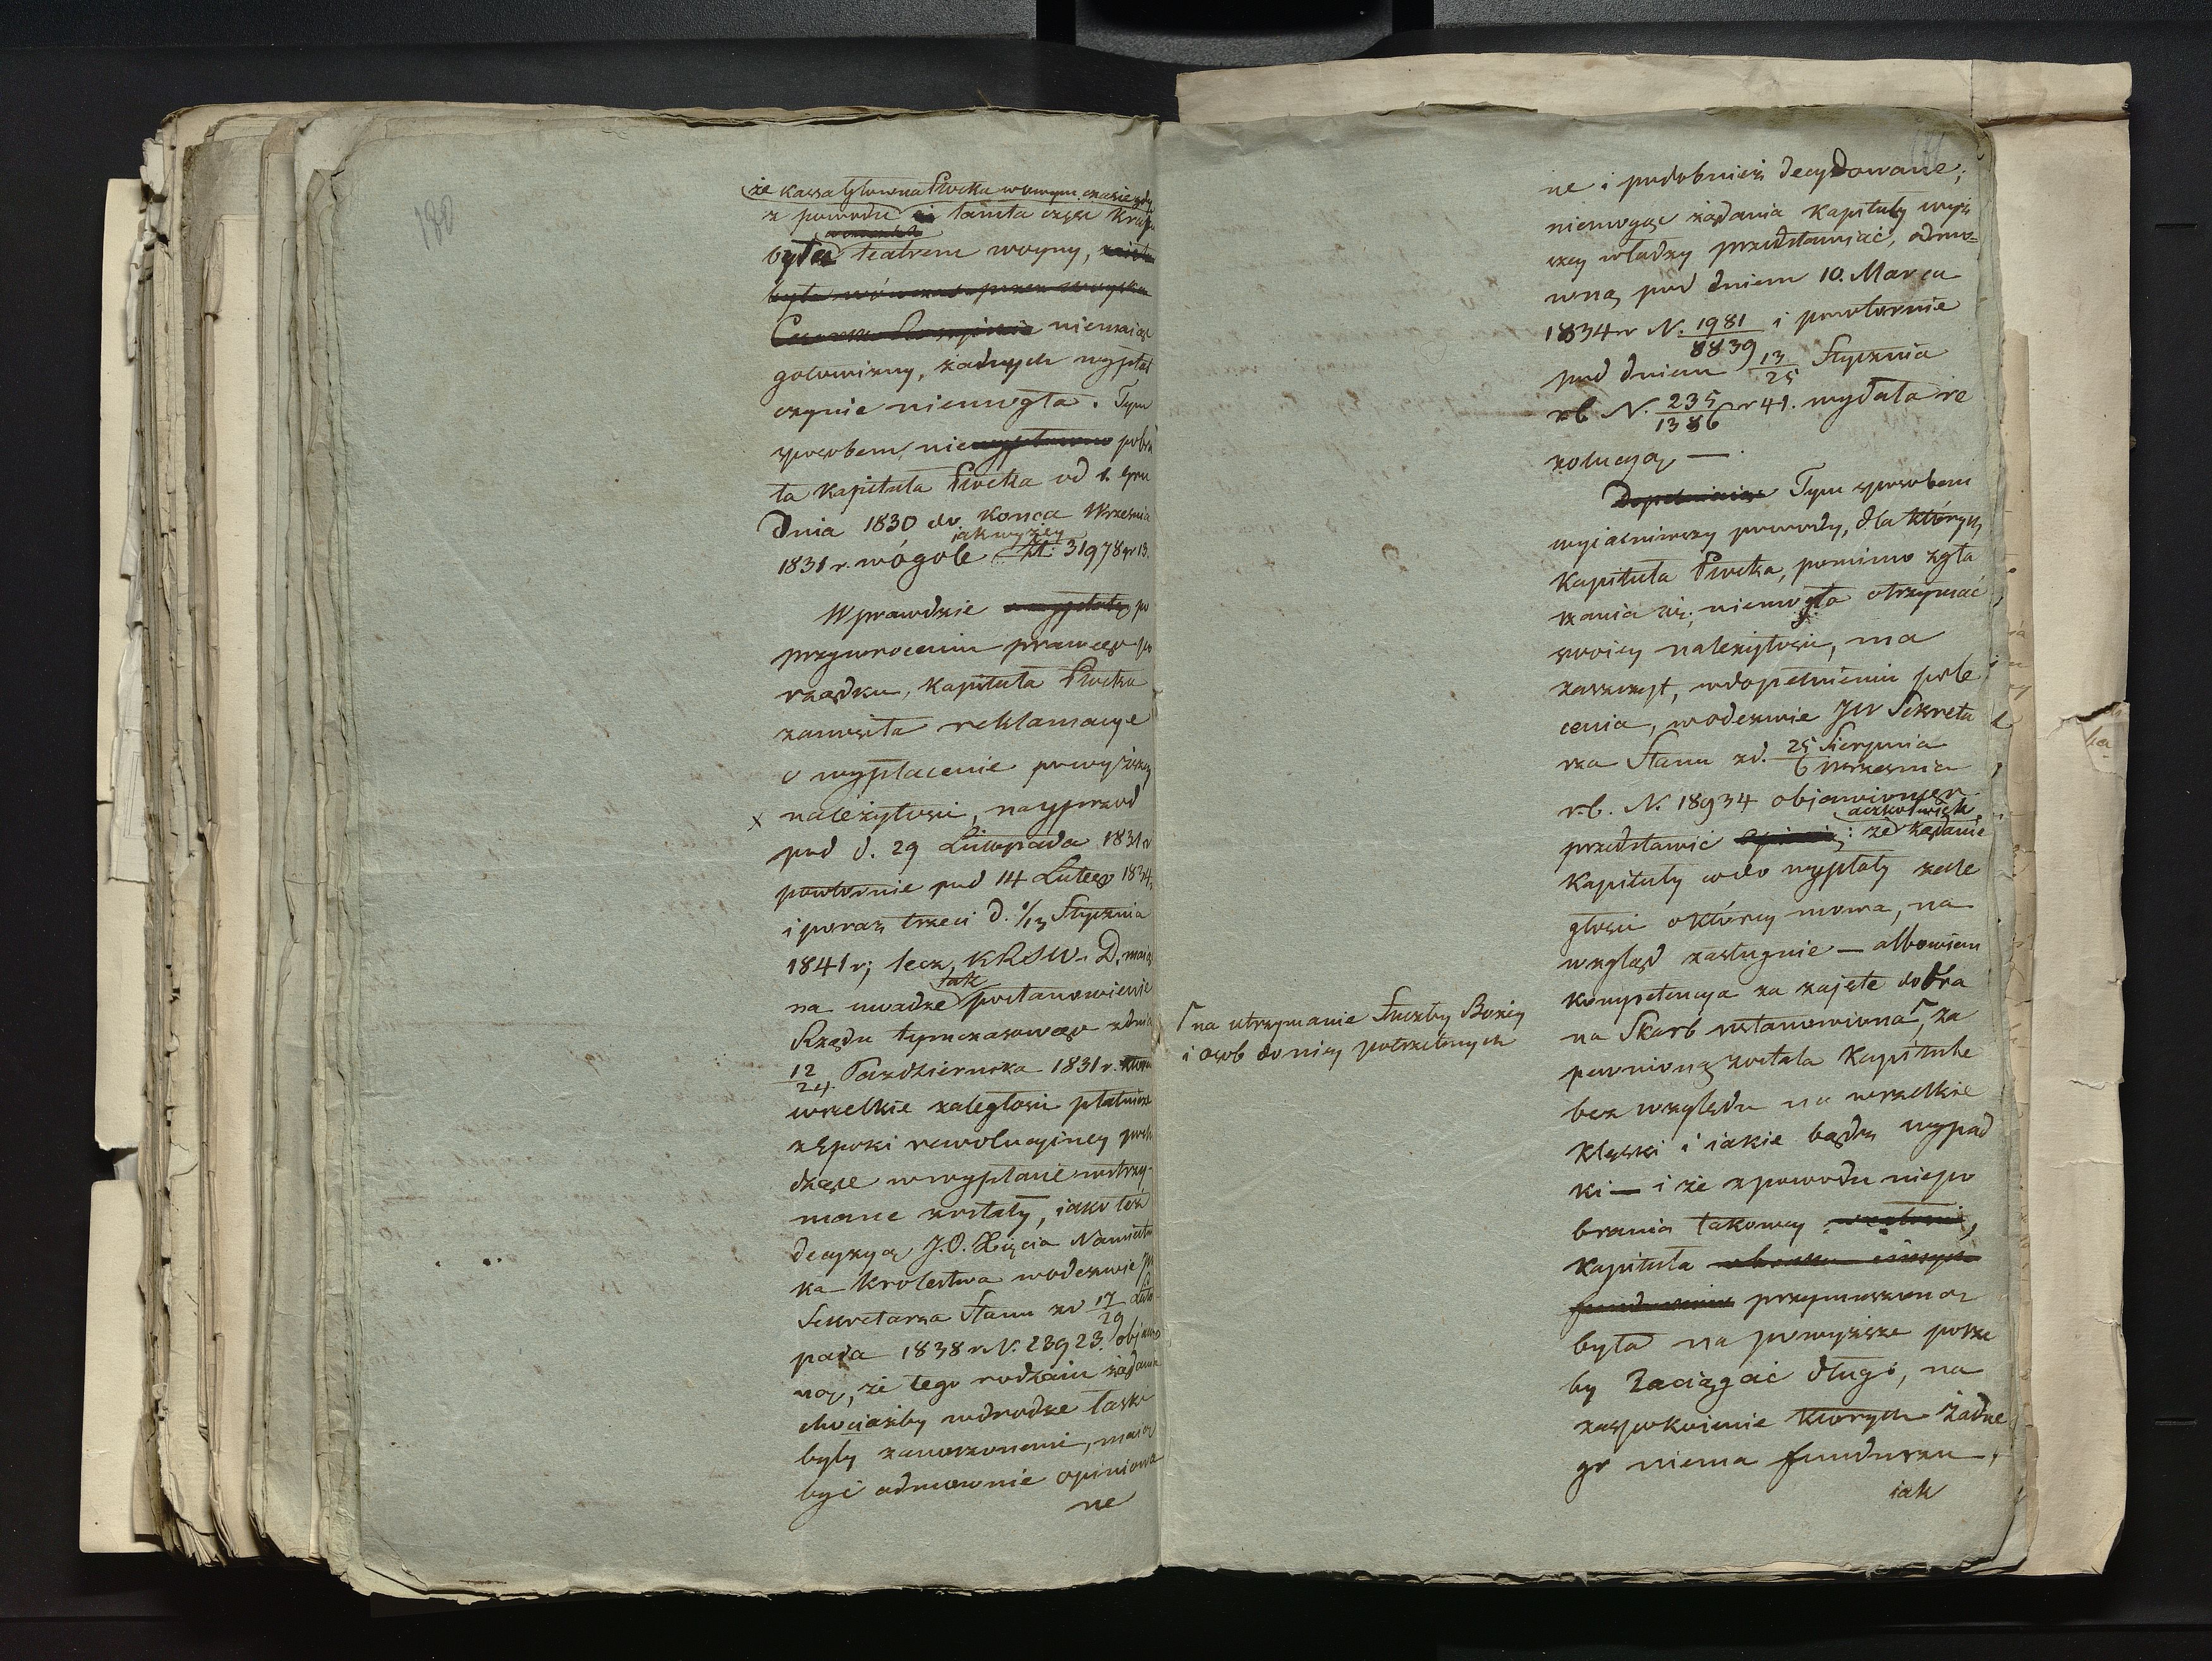 180
że Kassa Głowna Płocka w owym czasie gdy
z powodu iż tamta częsc Kraju
była teatrem woyny,
była wówczas przez woyska
Cesarsko Rossyiskie niemaiąc
gotowizny, żadnych wypłat
czynic niemogła. Tym
sposobem, niewypłacono pobra
ła Kapituła Płocka od 1. Gru
dnia 1830 do Konca Września
iak wyżey
1831 r. wógole Zł: 31978 gr 13.
Wprawdzie o wypłatę po
przywroceniu prawego po
rządku, Kapituła Płocka
zanosiła reklamacye
o wypłacenie powyższey
x należytosci, nayprzod
pod d. 29 Listopada 1831 r
powtornie pod 14 Lutego 1834
i poraz trzeci d. 1/13 Stycznia
1841 r; lecz, KRSW. D, maiąc
tak
na uwadze postanowienie
Rządu tymczasowego z dnia
12/24 Pazdziernika 1831 r.
wszelkie zaległosci płatnicze
z Epoki rewolucyiney pocho
dzące w wypłacie wstrzy-
mane zostały, iako też
decyzyą J.O. Xięcia Namiestni
ka Krolestwa w odezwie JW
Sekretarza Stanu zd 17/29 Listo
pada 1838 r N. 23923. objawio
ną, że tego rodzaiu żądania
chociażby w drodze łaski
były zanoszonemi, maią
być odmownie opiniowa
ne
ne i podobnież decydowane;
niemogąc żądania Kapituły wyż
szey władzy przedstawiać, odmo=
wną pod dniem 10. Marca
1834 r N. 1981/8839 i powtornie
pod dniem 13/25 Stycznia
rb N. 235/1386 r 41. wydała re
zolucyą —
Dopełniaiąc Tym sposobem
wyiasniwszy powody, dla których
Kapituła Płocka, pomimo zgła
szania się, niemogła otrzymać
swoiey należytosci, ma
zaszczyt, w dopełnieniu pole
cenia, w odezwie JW Sekreta
rza Stanu zd. 25 Sierpnia/6 Września
r.b. N. 18934 objawionego
aczkolwiek
przedstawić opinią: że żądanie
Kapituły co do wypłaty zale
głosci o którey mowa, na
wzgląd zasługuie — albowiem
kompetencya za zajęte dobra
na Skarb ustanowiona Γ, za
pewnioną została Kapitule
bez względu na wszelkie
klęski i iakie bądź wypad
ki — i że z powodu niepo
brania takowey w całosci,
Kapituła
funduszow przymuszoną
była na powyższe potrze
by zaciągać długi, na
zaspokoienie ktorych żadne
go niema funduszu,
iak
Γ na utrzymanie Służby Bożey
i osob do niey potrzebnych